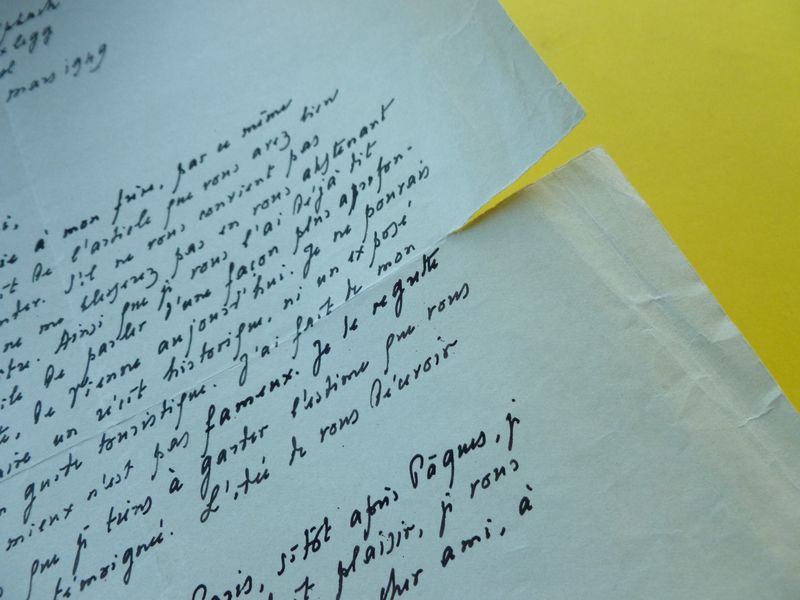 mars 1949
à mon frère, par ce même
de l'article que vous avez bien
s'il ne vous convient pas
ne me blesserez pas en vous abstenant
Ainsi que je vous l'ai déjà dit
de parler d'une façon plus approfon-
de Vienne aujourd'hui. Je ne pouvais
un récit historique, ni un exposé
guide touristique. J'ai fait de mon
mieux n'est pas fameux. Je le regrette
que je tiens à garder l'estime que vous
témoigné. L'idée de vous décevoir
Paris, sitôt après Pâques, je
plaisir, je vous
cher ami, à